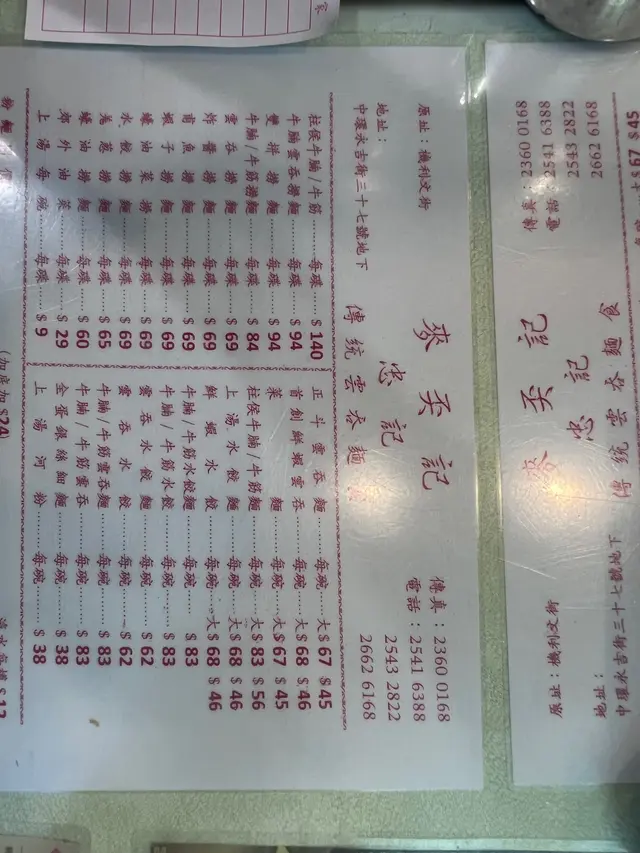 原址：機利文街
地址：
中環永吉街三十七號地下
麥奀記
忠記
傳統雲吞麵
傳真：2360 0168
電話：2541 6388
2543 2822
2662 6168
柱侯牛腩/牛筋……每碟…$140
牛腩雲吞撈麵……每碟…$94
雙拼撈麵……每碟…$94
牛腩/牛筋撈麵……每碟…$84
雲吞撈麵……每碟…$69
炸醬撈麵……每碟…$69
魚撈麵……每碟…$69
蝦子撈麵……每碟…$69
蠔油菜撈麵……每碟…$69
水餃撈麵……每碟…$69
薑葱撈麵……每碟…$65
蠔油撈麵……每碟…$60
郊外油菜……每碟…$29
上湯每碗……每碗…$9
正斗雲吞麵……每碗…大$67 $45
首創鮮蝦雲吞……每碗…大$68 $46
菜麵……每碗…大$67 $45
柱侯牛腩/牛筋麵……每碗…大$83 $56
上湯水餃麵……每碗…大$68 $46
鮮蝦水餃……每碗…大$68 $46
牛腩/牛筋水餃麵……每碗…$83
牛腩/牛筋水餃……每碗…$83
雲吞水餃麵……每碗…$62
雲吞水餃……每碗…$62
牛腩/牛筋雲吞麵……每碗…$83
牛腩/牛筋雲吞……每碗…$83
金蛋銀絲細麵……每碗…$38
上湯河粉……每碗…$38
(加底加$24)
$67 $45
傳真：2360 0168
電話：2541 6388
2543 2822
2662 6168
麥奀記
忠記
傳統雲吞麵食
原址：機利文街
地址：
中環永吉街三十七號地下